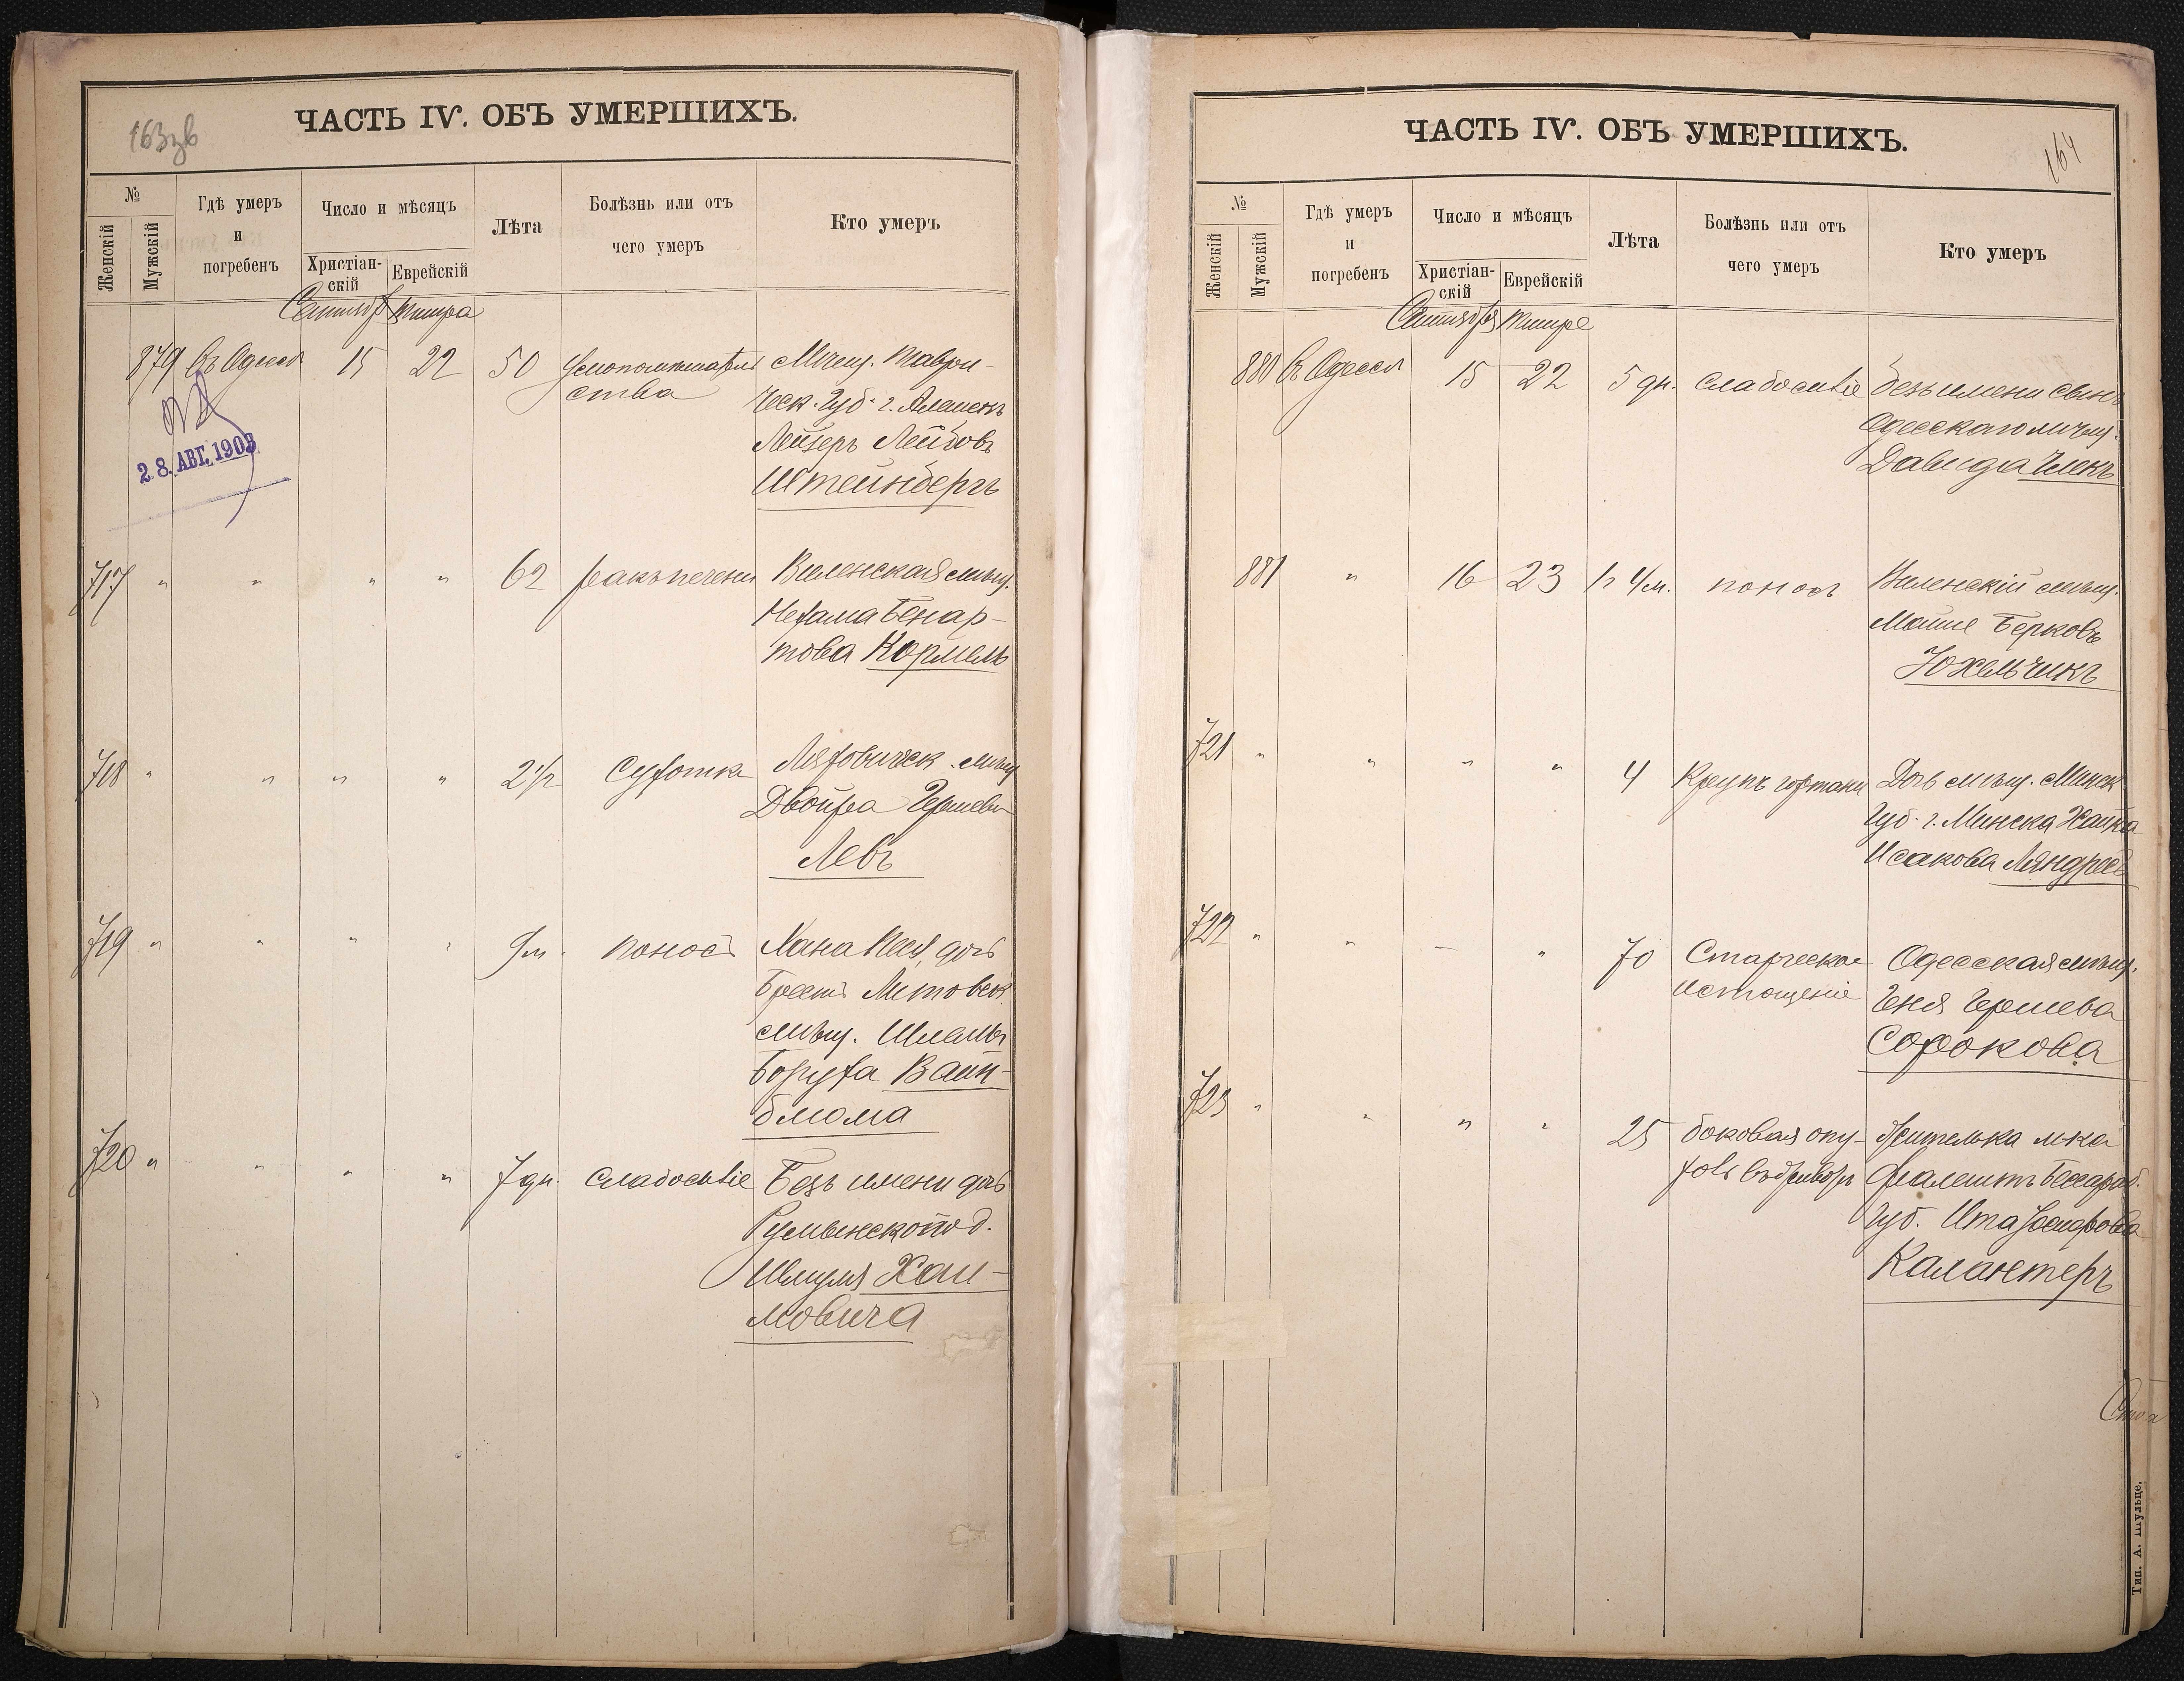 163зв
ЧАСТЬ IV. ОБЪ УМЕРШИХЪ.
№
Женскій
Мужскій
Гдѣ умеръ
и
погребенъ
Число и мѣсяцъ
Христіан-
скій
Еврейскій
Лѣта
Болѣзнь или отъ
чего умеръ
Кто умеръ
Сентябр Тишра
879 Въ Одессѣ 15 22 50 Мѣщ. Таври-
ства ческ. Губ. г. Алешекъ
Лейзеръ Лейбовъ
28. АВГ. 1903
Штейнбергъ
717 " " " " 62 ракъ печени Виленская мѣщ.
Нехама Бенар-
това Кормель
718 " " " " 2 1/2 Сухотка Ляховическ. мѣщ
Двойра Гершева
Левъ
719 " " " " 9 м. поносъ Хана Песя, дочь
Брестъ Литовск.
мѣщ. Шлемы
Боруха Вайн-
блюма
720 " " " " 7 дн. слабосиліе Безъ имени дочь
Румынского п д.
Шмуля Хаи-
мовича
164
ЧАСТЬ IV. ОБЪ УМЕРШИХЪ.
№
Женскій
Мужскій
Гдѣ умеръ
и
погребенъ
Число и мѣсяцъ
Христіан-
скій
Еврейскій
Лѣта
Болѣзнь или отъ
чего умеръ
Кто умеръ
Сентября Тишре
880 Въ Одессѣ 15 22 5 дн. слабосиліе безъ имени сынъ
Одесскаго мѣщ.
Давида Чикъ
881 " 16 23 1 г 4 м. поносъ Виленскій мѣщ.
Мойше Берковъ
Юхельчикъ
721 " " " " 4 Крупъ гортани Дочь мѣщ. Минск
Губ. г. Минска Хайка
Исакова Ляндресъ
722 " " — " 70 Старческое Одесская мѣщ.
истощеніе Геня Гершева
Сорокова
723 " " " " 25 боковая опу- Жителька м-ка
Фалешты Бессараб.
Губ. Ита
Калантеръ
Тип. А. Шульце.